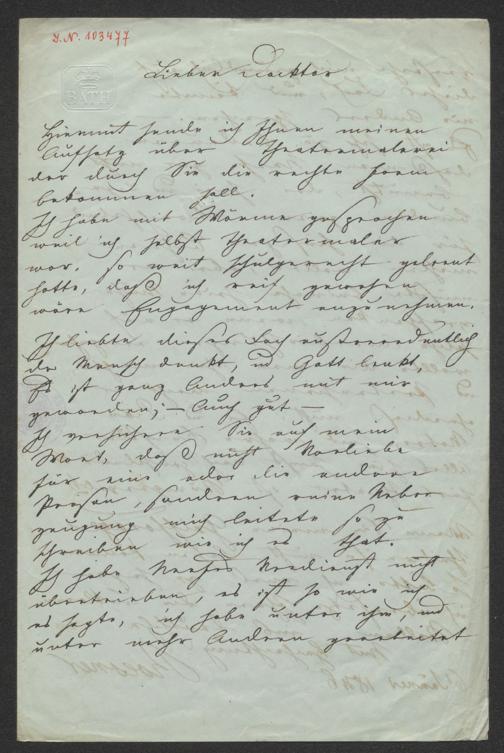 J. N. 103477
BATH
Lieber Docktor
Hiermit sende ich Ihnen meinen
Aufsatz über Theatermalerei
der durch Sie die rechte Form
bekommen soll.
Ich habe mit Wärme gesprochen
weil ich selbst Theatermaler
war. so weit schulgerecht gelernt
hatte, daß ich reif gewesen
wäre Engagement anzunehmen.
Ich liebte dieses Fach außerordentlich
der Mensch denkt, und Gott lenkt,
Es ist ganz anders mit mir
geworden; – Auch gut –
Ich versichere Sie auf mein
Wort, daß nicht Vorliebe
für eine oder die andere
Person, sondern reine Ueber
zeugung mich leitete so zu
schreiben wie ich es that.
Ich habe Verdienst nicht
übertrieben, es ist so wie ich
es sagte, ich habe unter ihm, und
unter mehr Andren gearbeitet